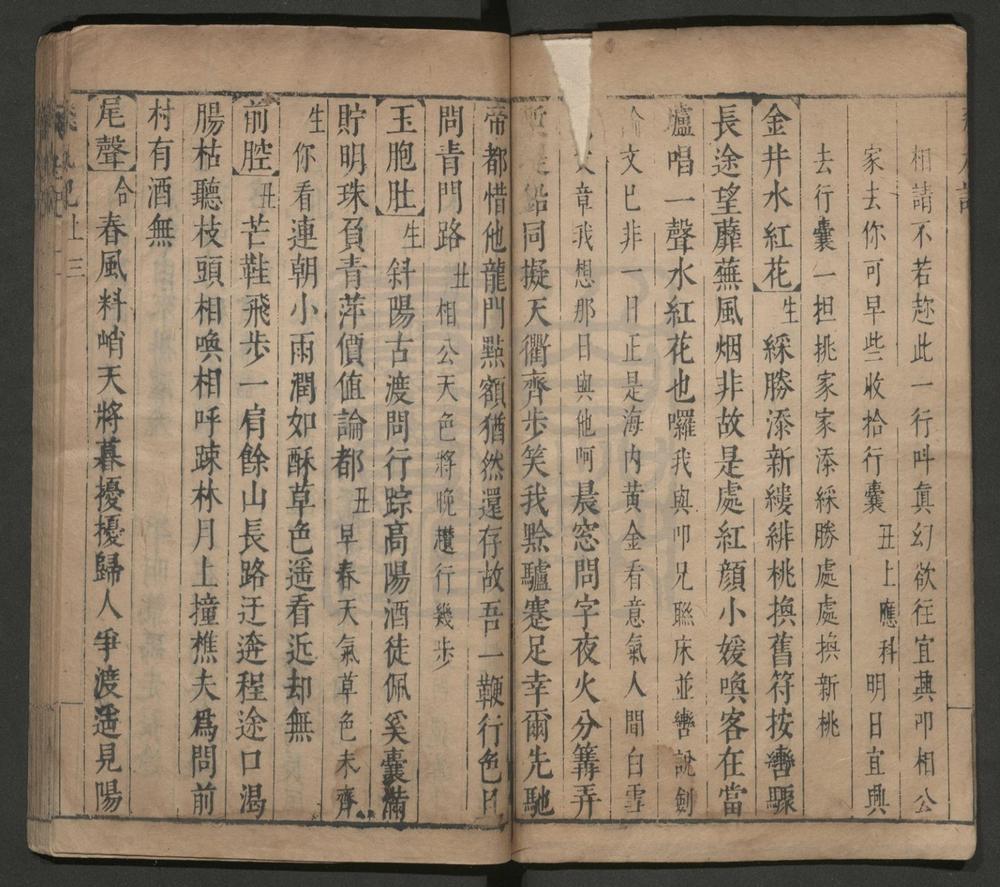 相請不若趂此一行呌眞幻欲往宜興卬相公
家去你可早些收拾行囊丑上應科明日宜興
去行囊一担挑家家添綵勝處處換新桃
【金井水紅花】生綵勝添新縷緋桃換舊符按轡驟
長途望蘼蕪風烟非故是處紅顔小媛喚客在當
壚唱一聲水紅花也囉我與卬兄聮床並轡說劍
文巳非一日正是海内黃金看意氣人間白雪
文章我想那日與他呵晨窓問字夜火分篝弄
鉛同擬天衢齊步笑我黥驢蹇足幸爾先馳
帝都惜他龍門㸃額猶然還存故吾一鞭行色且
問青門路丑相公天色將晚趲行幾步
【玉胞肚】生斜陽古渡問行踪高陽酒徒佩奚囊滿
貯明珠負青萍價值論都丑早春天氣草色未齊
生你看連朝小雨潤如酥草色遥看近却無
【前腔】丑芒鞋飛步一肩餘山長路迂遶程途口渴
腸枯聽枝頭相喚相呼踈林月上撞樵夫爲問前
村有酒無
【尾聲】合春風料峭天將暮擾擾歸人爭渡遥見陽
上 三